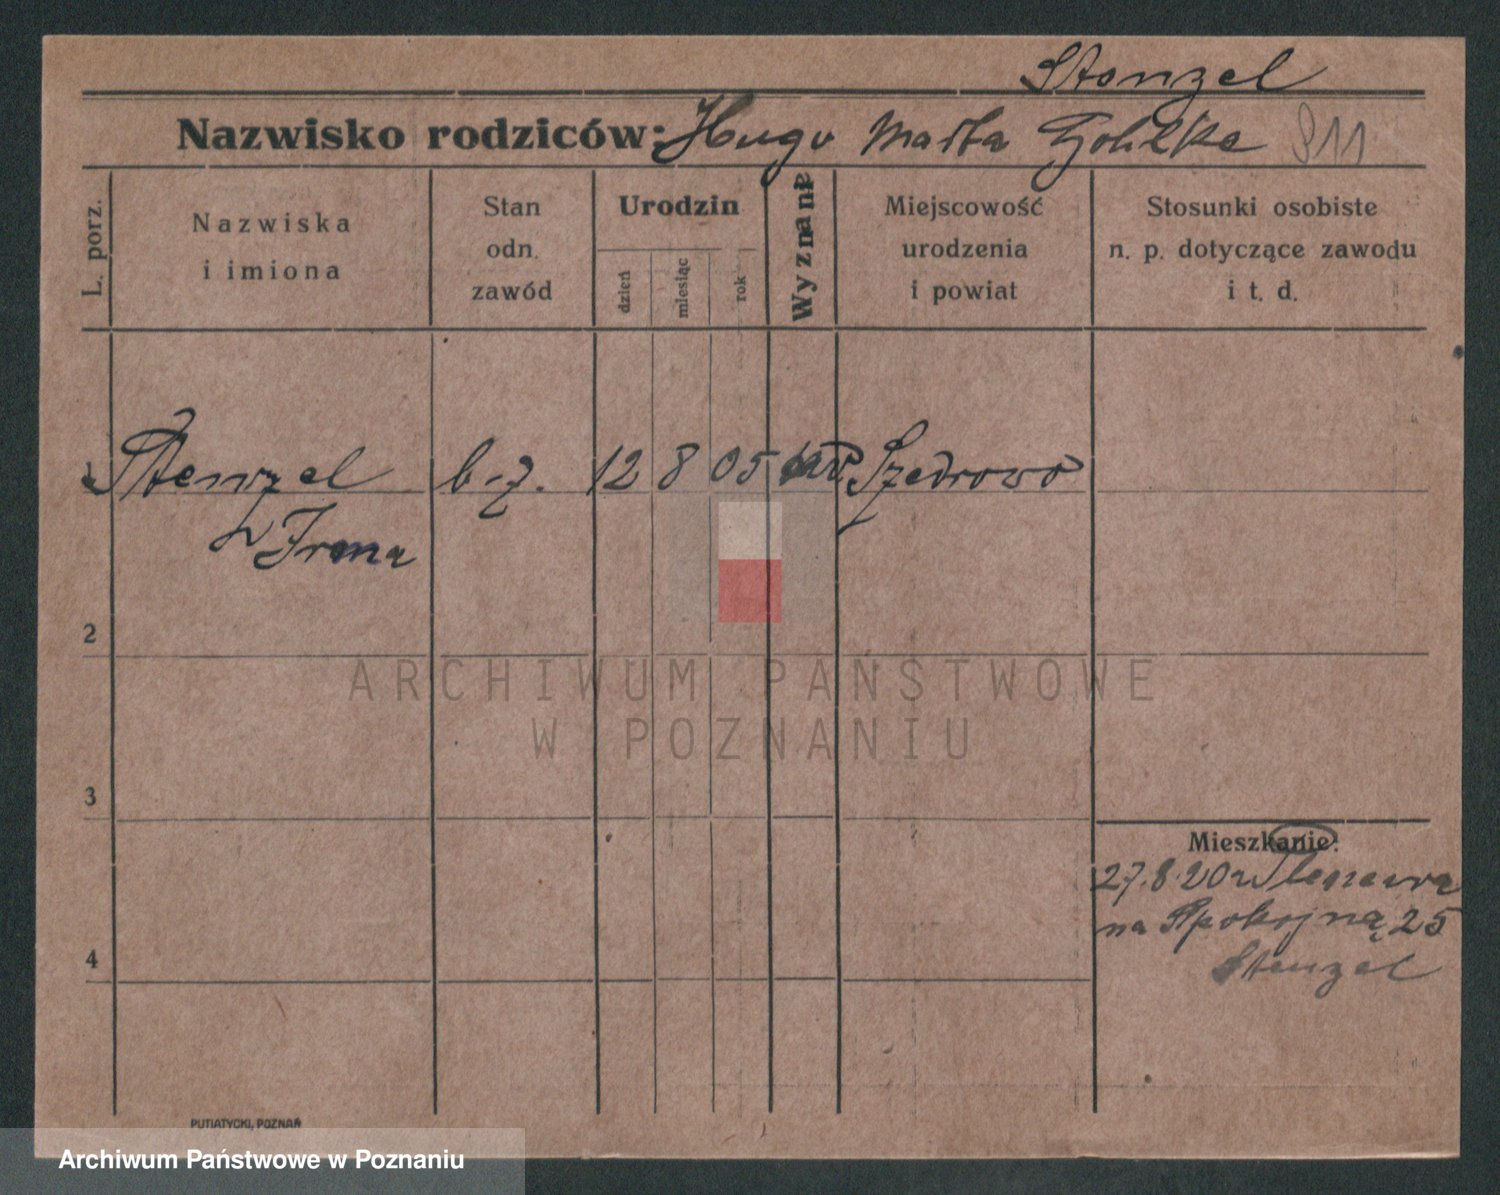 Stenzel
Nazwisko rodziców: Hugo Marta 811
L. porz.
Nazwiska
i imiona
Stan
odn.
zawód
Urodzin
dzień
miesiąc
rok
Wyznanie
Miejscowość
urodzenia
i powiat
Stosunki osobiste
n. p. dotyczące zawodu
i t. d.
1 Stenzel b-z. 12 8 05 Szedrowo
Irena
2
3
4
Mieszkanie:
27.8.20
na Spokojną 25
Stenzel
PUTIATYCKI, POZNAŃ
ARCHIWUM PAŃSTWOWE
W POZNANIU
Archiwum Państwowe w Poznaniu